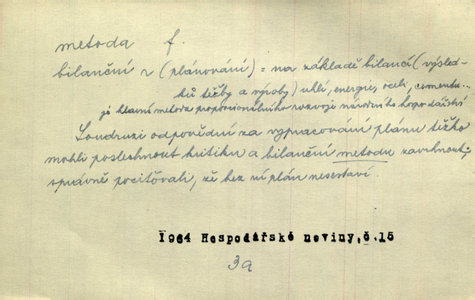 metoda f.
bilanční ~ (plánování) = na základě bilancí (výsled-
ků těžby a výroby) uhlí, energie, oceli, cementu...
je hlavní metoda proporcionálního rozvoje národního hospodářství
Soudruzi odpovědní za vypracování plánu těžko
mohli poslechnout kritiku a bilanční metodu zavrhnout;
správně pociťovali, že bez ní plán nesestaví.
1964 Hospodářské noviny, č. 15
3a